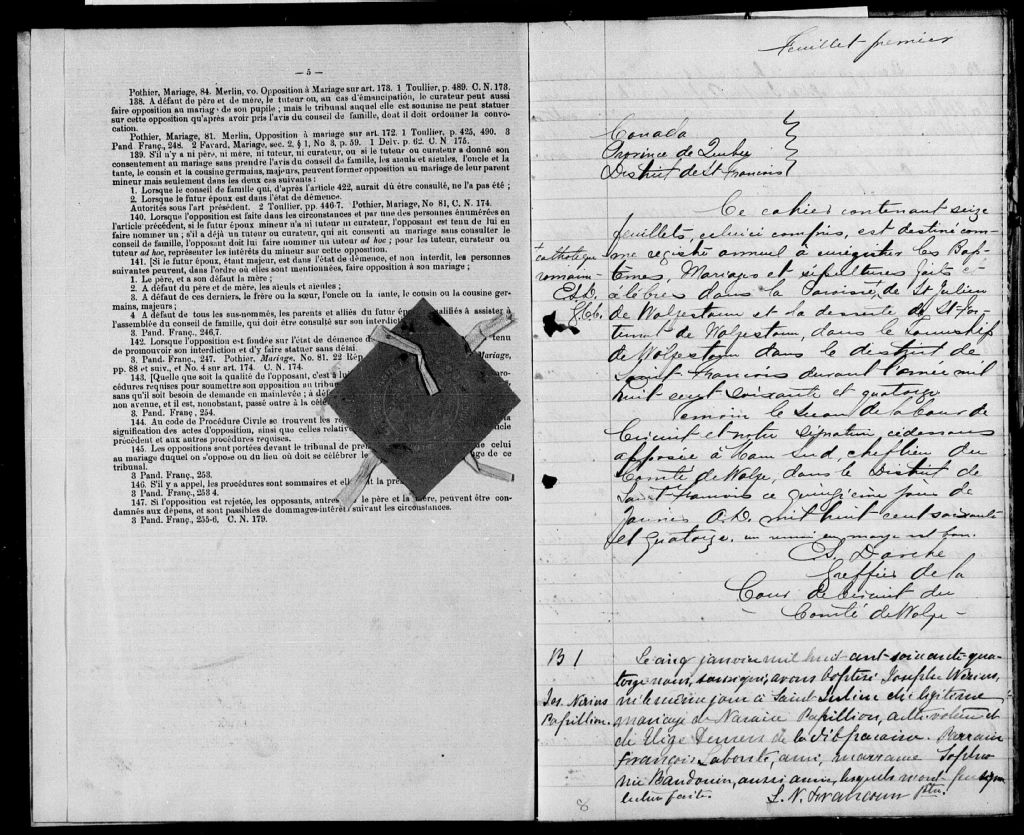 — 5 —
Pothier, Mariage, 84. Merlin, vo. Opposition à Mariage sur art. 173. 1 Toullier, p. 489. C. N. 173.
138. A défaut de père et de mère, le tuteur ou, au cas d'émancipation, le curateur peut aussi
faire opposition au mariag de son pupile ; mais le tribunal auquel elle est soumise ne peut statuer
sur cette opposition qu'après avoir pris l'avis du conseil de famille, dont il doit ordonner la convo-
cation.
Pothier, Mariage, 81. Merlin, Opposition à mariage sur art. 172. 1 Toullier, p. 425, 490. 3
Pand. Franç., 248. 2 Favard, Mariage, sec. 2. § 1, No 3, p. 59. 1 Delv. p. 62. C. N. 175.
139. S'il n'y a ni père, ni mère, ni tuteur, ni curateur, ou si le tuteur ou curateur a donné son
consentement au mariage sans prendre l'avis du conseil de famille, les aïeuls et aïeules, l'oncle et la
tante, le cousin et la cousine germains, majeurs, peuvent former opposition au mariage de leur parent
mineur mais seulement dans les deux cas suivants :
1. Lorsque le conseil de famille qui, d'après l'article 422, aurait dû être consulté, ne l'a pas été ;
2. Lorsque le futur époux est dans l'état de démence.
Autorités sous l'art présédent. 2 Toullier, pp. 446-7. Pothier, Mariage, No 81, C. N. 174.
140. Lorsque l'opposition est faite dans les circonstances et par une des personnes énumérées en
l'article précédent, si le futur époux mineur n'a ni tuteur ni curateur, l'opposant est tenu de lui en
faire nommer un ; s'il a déjà un tuteur ou curateur, qui ait consenti au mariage sans consulter le
conseil de famille, l'opposant doit lui faire nommer un tuteur ad hoc ; pour les tuteur, curateur ou
tuteur ad hoc, représenter les intérêts du mineur sur cette opposition.
141. [Si le futur époux, étant majeur, est dans l'état de démence, et non interdit, les personnes
suivantes peuvent, dans l'ordre où elles sont mentionnées, faire opposition à son mariage ;
1. Le père, et a son défaut la mère ;
2. A défaut du père et de mère, les aïeuls et aïeules ;
3. A défaut de ces derniers, le frère ou la sœur, l'oncle ou la tante, le cousin ou la cousine ger-
mains, majeurs ;
4 A défaut de tous les sus-nommés, les parents et alliés du futur ép qualifiés à assister à
l'assemblée du conseil de famille, qui doit être consulté sur son interdic
3. Pand. Franç., 246,7.
142. Lorsque l'opposition est fondée sur l'état de démence d tenu
de promouvoir son interdiction et d'y faire statuer sans délai.
3. Pand. Franç., 247. Pothier, Mariage. No. 81. 22 Rép Mariage,
pp. 88 et suiv., et No. 4 sur art. 174. C. N. 174.
143. [Quelle que soit la qualité de l'opposant, c'est à lui
cédures requises pour soumettre son opposition au tribu
sans qu'il soit besoin de demande en mainlevée ; à déf
non avenue, et il est, nonobstant, passé outre à la cél
3 Pand. Franç, 254.
144. Au code de Procédure Civile se trouvent les r
signification des actes d'opposition, ainsi que celles relativ cle
procédent et aux autres procédures requises.
145. Les oppositions sont portées devant le tribunal de pre celui
au mariage duquel on s'oppose ou du lieu où doit se célébrer le ge de ce
tribunal.
3 Pand. Franç., 253.
146. S'il y a appel, les procédures sont sommaires et ell nt la pré
3 Pand. Franç., 253 4.
147. Si l'opposition est rejetée, les opposants, autres le père et la mère, peuvent être con-
damnés aux dépens, et sont passibles de dommages-intérêt suivant les circonstances.
3 Pand. Franç., 255-6. C. N. 179.
Feuillet premier
Canada
Province de Quebec
District de St François
Ce cahier contenant seize
feuillets, celui ci compris, est destiné com-
+ catholique
romain
me registre annuel à enregistrer les Bap-
têmes, Mariages et sépultures faits et
célébrés dans la Paroisse, de St Julien
de Wolfestown et la desserte de St. For-
tunat de Wolfestown, dans le Township
de Wolfestown dans le district de
Saint François durant l'année mil
huit cent soixante et quatorze
Témoin le Sceau de la Cour de
Circuit et notre signature, ci dessous
apposée à Ham Sud, chef lieu du
Comté de Wolfe, dans le District de
Saint François ce quinzième jour de
Janvier A.D. mil huit cent soixante
et quatorze, un renvoi en marge est bon.
Greffier de la
Cour de Circuit du
Comté de Wolfe -
B 1
Jos. Nérius
Papillion.
Le cinq janvier mil huit cent soixante qua-
torze nous, soussigné, avons baptisé Joseph Nérius,
né le même jour à Saint Julien du légitime
mariage de Naraise Papillion, cultivateur et
de Élize Demers de la dite paroisse. Parrain
François Labonté, ami, marraine Sophro-
nie Baudouin, aussi amie, lesquels n'ont su signer
lecture faite.
Ptre.
8